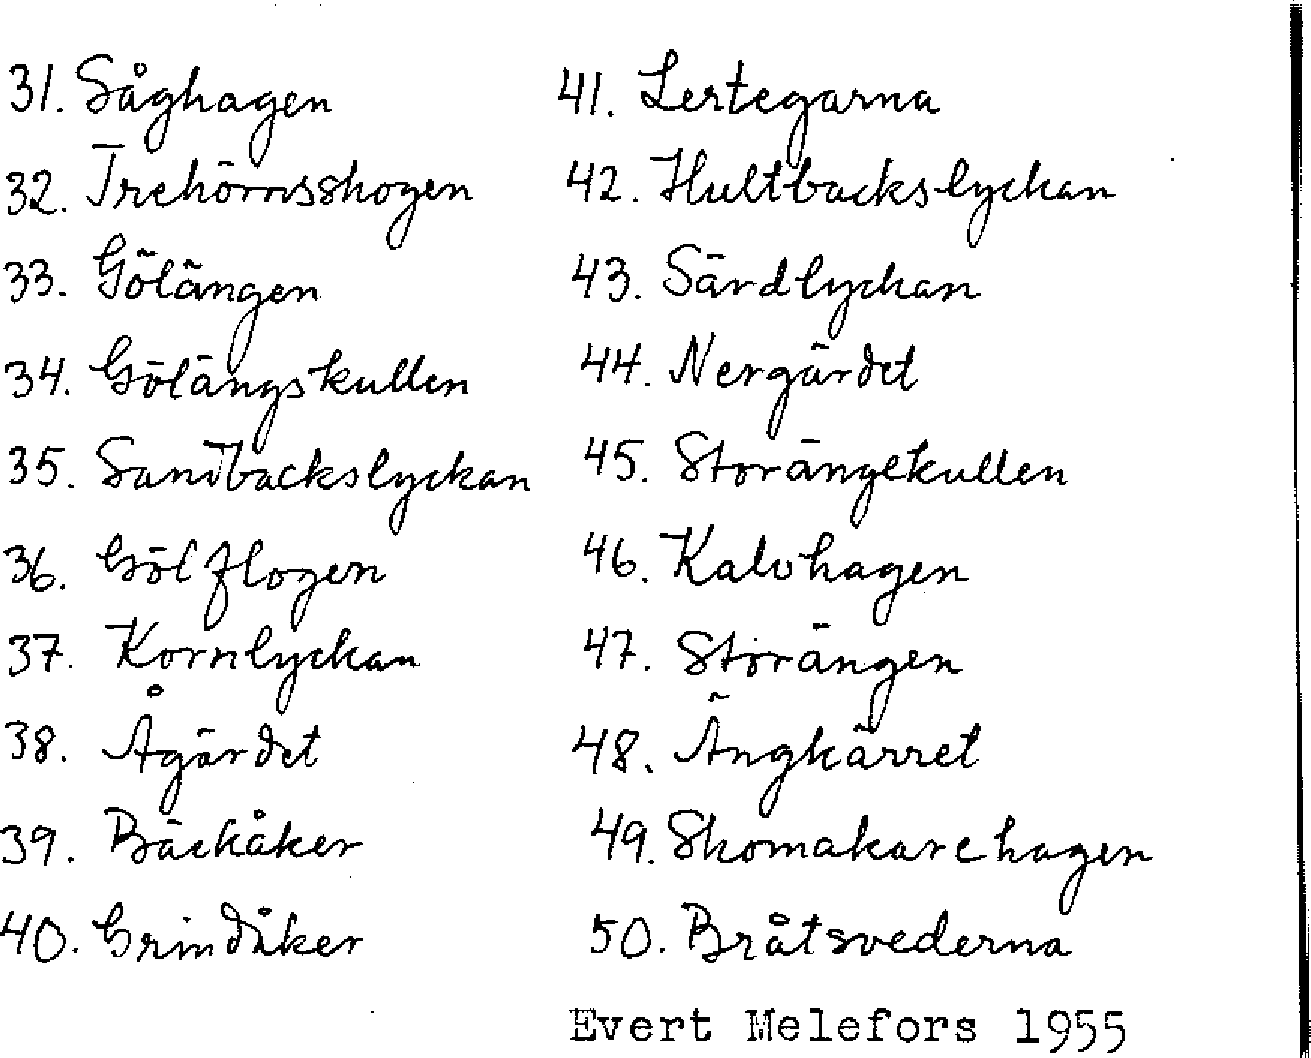 31. Såghagen
32. Trehörnsskogen
33. Gölängen
34. Gölängskullen
35. Sandbackslyckan
36. Gölflogen
37. Kornlyckan
38. Ågärdet
39. Bäckåker
40. Grindåker
41. Lertegarna
42. Hultbackslyckan
43. Särdlyckan
44. Nergärdet
45. Storängekullen
46. Kalvhagen
47. Storängen
48. Ängkärret
49. Skomakarehagen
50. Bråtsvederna
Evert Melefors 1955